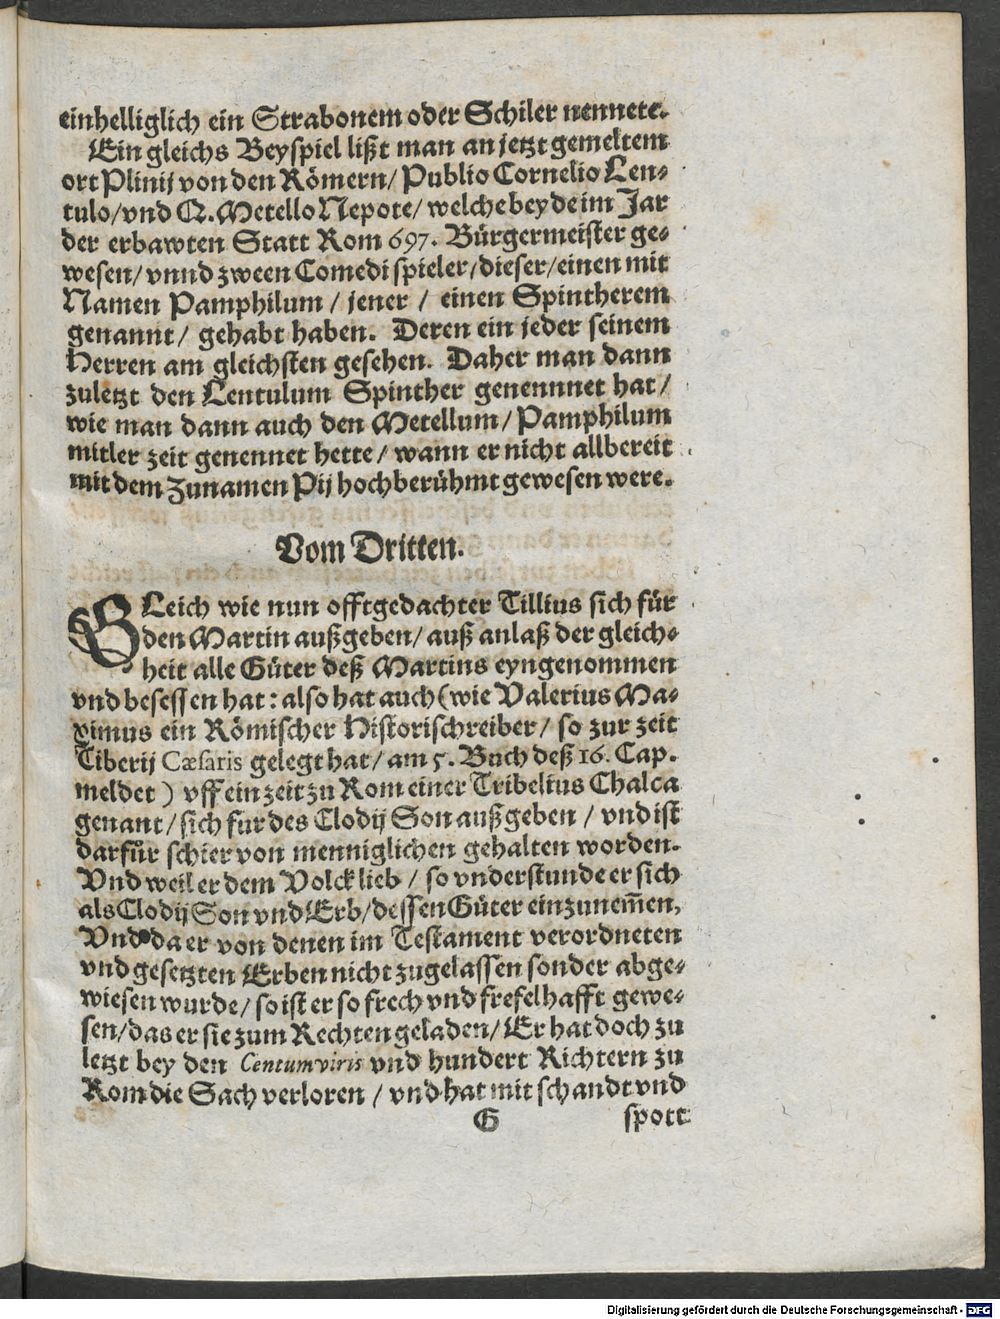 einhelliglich ein Strabonem oder Schiler nennete.
Ein gleichs Beyspiel lißt man an jetzt gemeltem
ort Plinij von den Römern/ Publio Cornelio Len-
tulo/ vnd Q. Metello Nepote/ welche beyde im Jar
der erbawten Statt Rom 697. Bürgermeister ge-
wesen/ vnnd zween Comedi spieler/ dieser/ einen mit
Namen Pamphilum / jener / einen Spintherem
genannt/ gehabt haben. Deren ein jeder seinem
Herren am gleichsten gesehen. Daher man dann
zuletzt den Lentulum Spinther genennnet hat/
wie man dann auch den Metellum/ Pamphilum
mitler zeit genennet hette/ wann er nicht allbereit
mit dem Zunamen Pij hochberühmt gewesen were.
Vom Dritten.
GLeich wie nun offtgedachter Tillius sich für
den Martin außgeben/ auß anlaß der gleich-
heit alle Güter deß Martins eyngenommen
vnd besessen hat: also hat auch (wie Valerius Ma-
ximus ein Römischer Historischreiber/ so zur zeit
Tiberij Cæsaris gelegt hat/ am 5. Buch deß 16. Cap.
meldet) vff ein zeit zu Rom einer Tribelius Chalca
genant/ sich fur des Clodij Son außgeben / vnd ist
darfür schier von menniglichen gehalten worden.
Vnd weil er dem Volck lieb / so vnderstunde er sich
als Clodij Son vnd Erb/ dessen Güter einzunem̄en,
Vnd da er von denen im Testament verordneten
vnd gesetzten Erben nicht zugelassen sonder abge-
wiesen wurde/ so ist er so frech vnd frefelhafft gewe-
sen/ das er sie zum Rechten geladen/ Er hat doch zu
letzt bey den Centumviris vnd hundert Richtern zu
Rom die Sach verloren / vnd hat mit schandt vnd
G spott
Digitalisierung gefördert durch die Deutsche Forschungsgemeinschaft - DFG